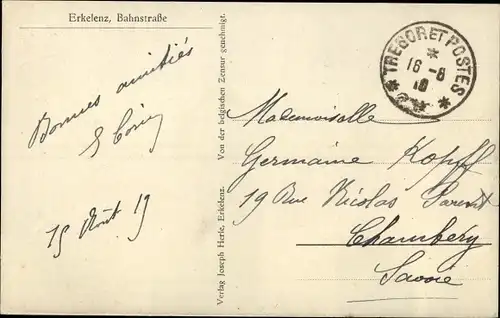 Erkelenz, Bahnstraße
Bonnes amitiés
15 Août 19
Verlag Joseph Herle, Erkelenz. Von der belgischen Zensur genehmigt.
* TRESOR ET POSTES *
*
16 - 8
Mademoiselle
Germaine Kopff
19 Rue Nicolas Parent
Chambéry
Savoie